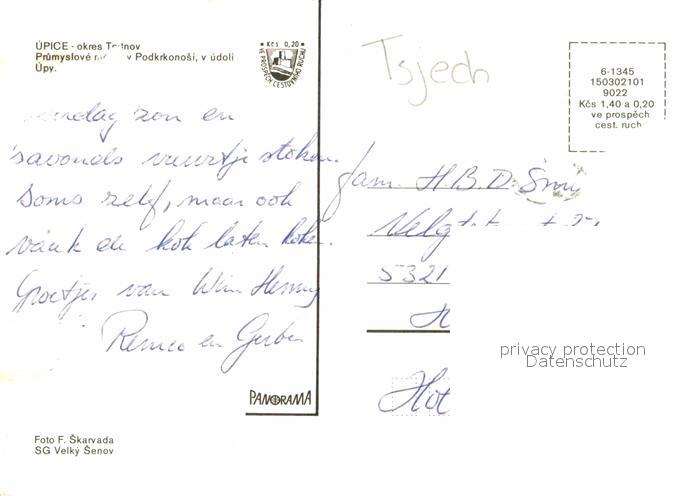 ÚPICE - okres Trutnov
Průmyslové v Podkrkonoší, v údolí
Úpy.
Kčs 0,20
VE PROSPĚCH CESTOVNÍHO RUCHU
Tsjech
6-1345
150302101
9022
Kčs 1,40 a 0,20
ve prospěch
cest. ruch
zon en
's avonds vuurtje stoken.
Soms zelf, maar ook
vaak de kok laten koken.
Groetjes van Wim Henny
Remco en
fam. H.B.D.
5321
H
Hot
privacy protection
Datenschutz
PANORAMA
Foto F. Škarvada
SG Velký Šenov